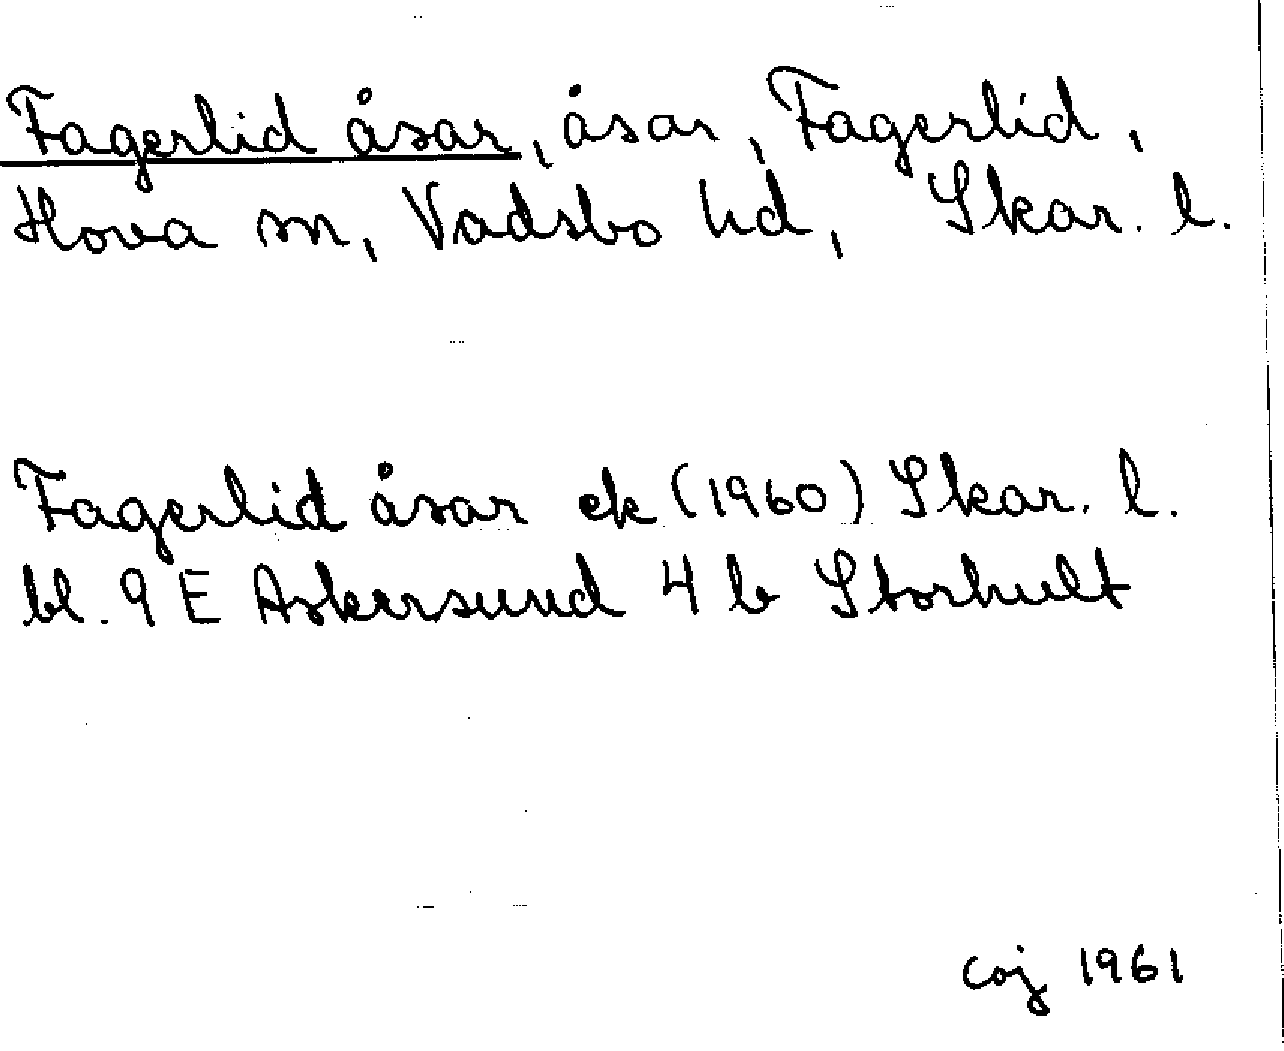 Fagerlid åsar, åsar, Fagerlid,
Hova sn, Vadsbo hd, Skar. l.
Fagerlid åsar ek (1960) Skar. l.
bl. 9 E Askersund 4 b Storhult
coj 1961